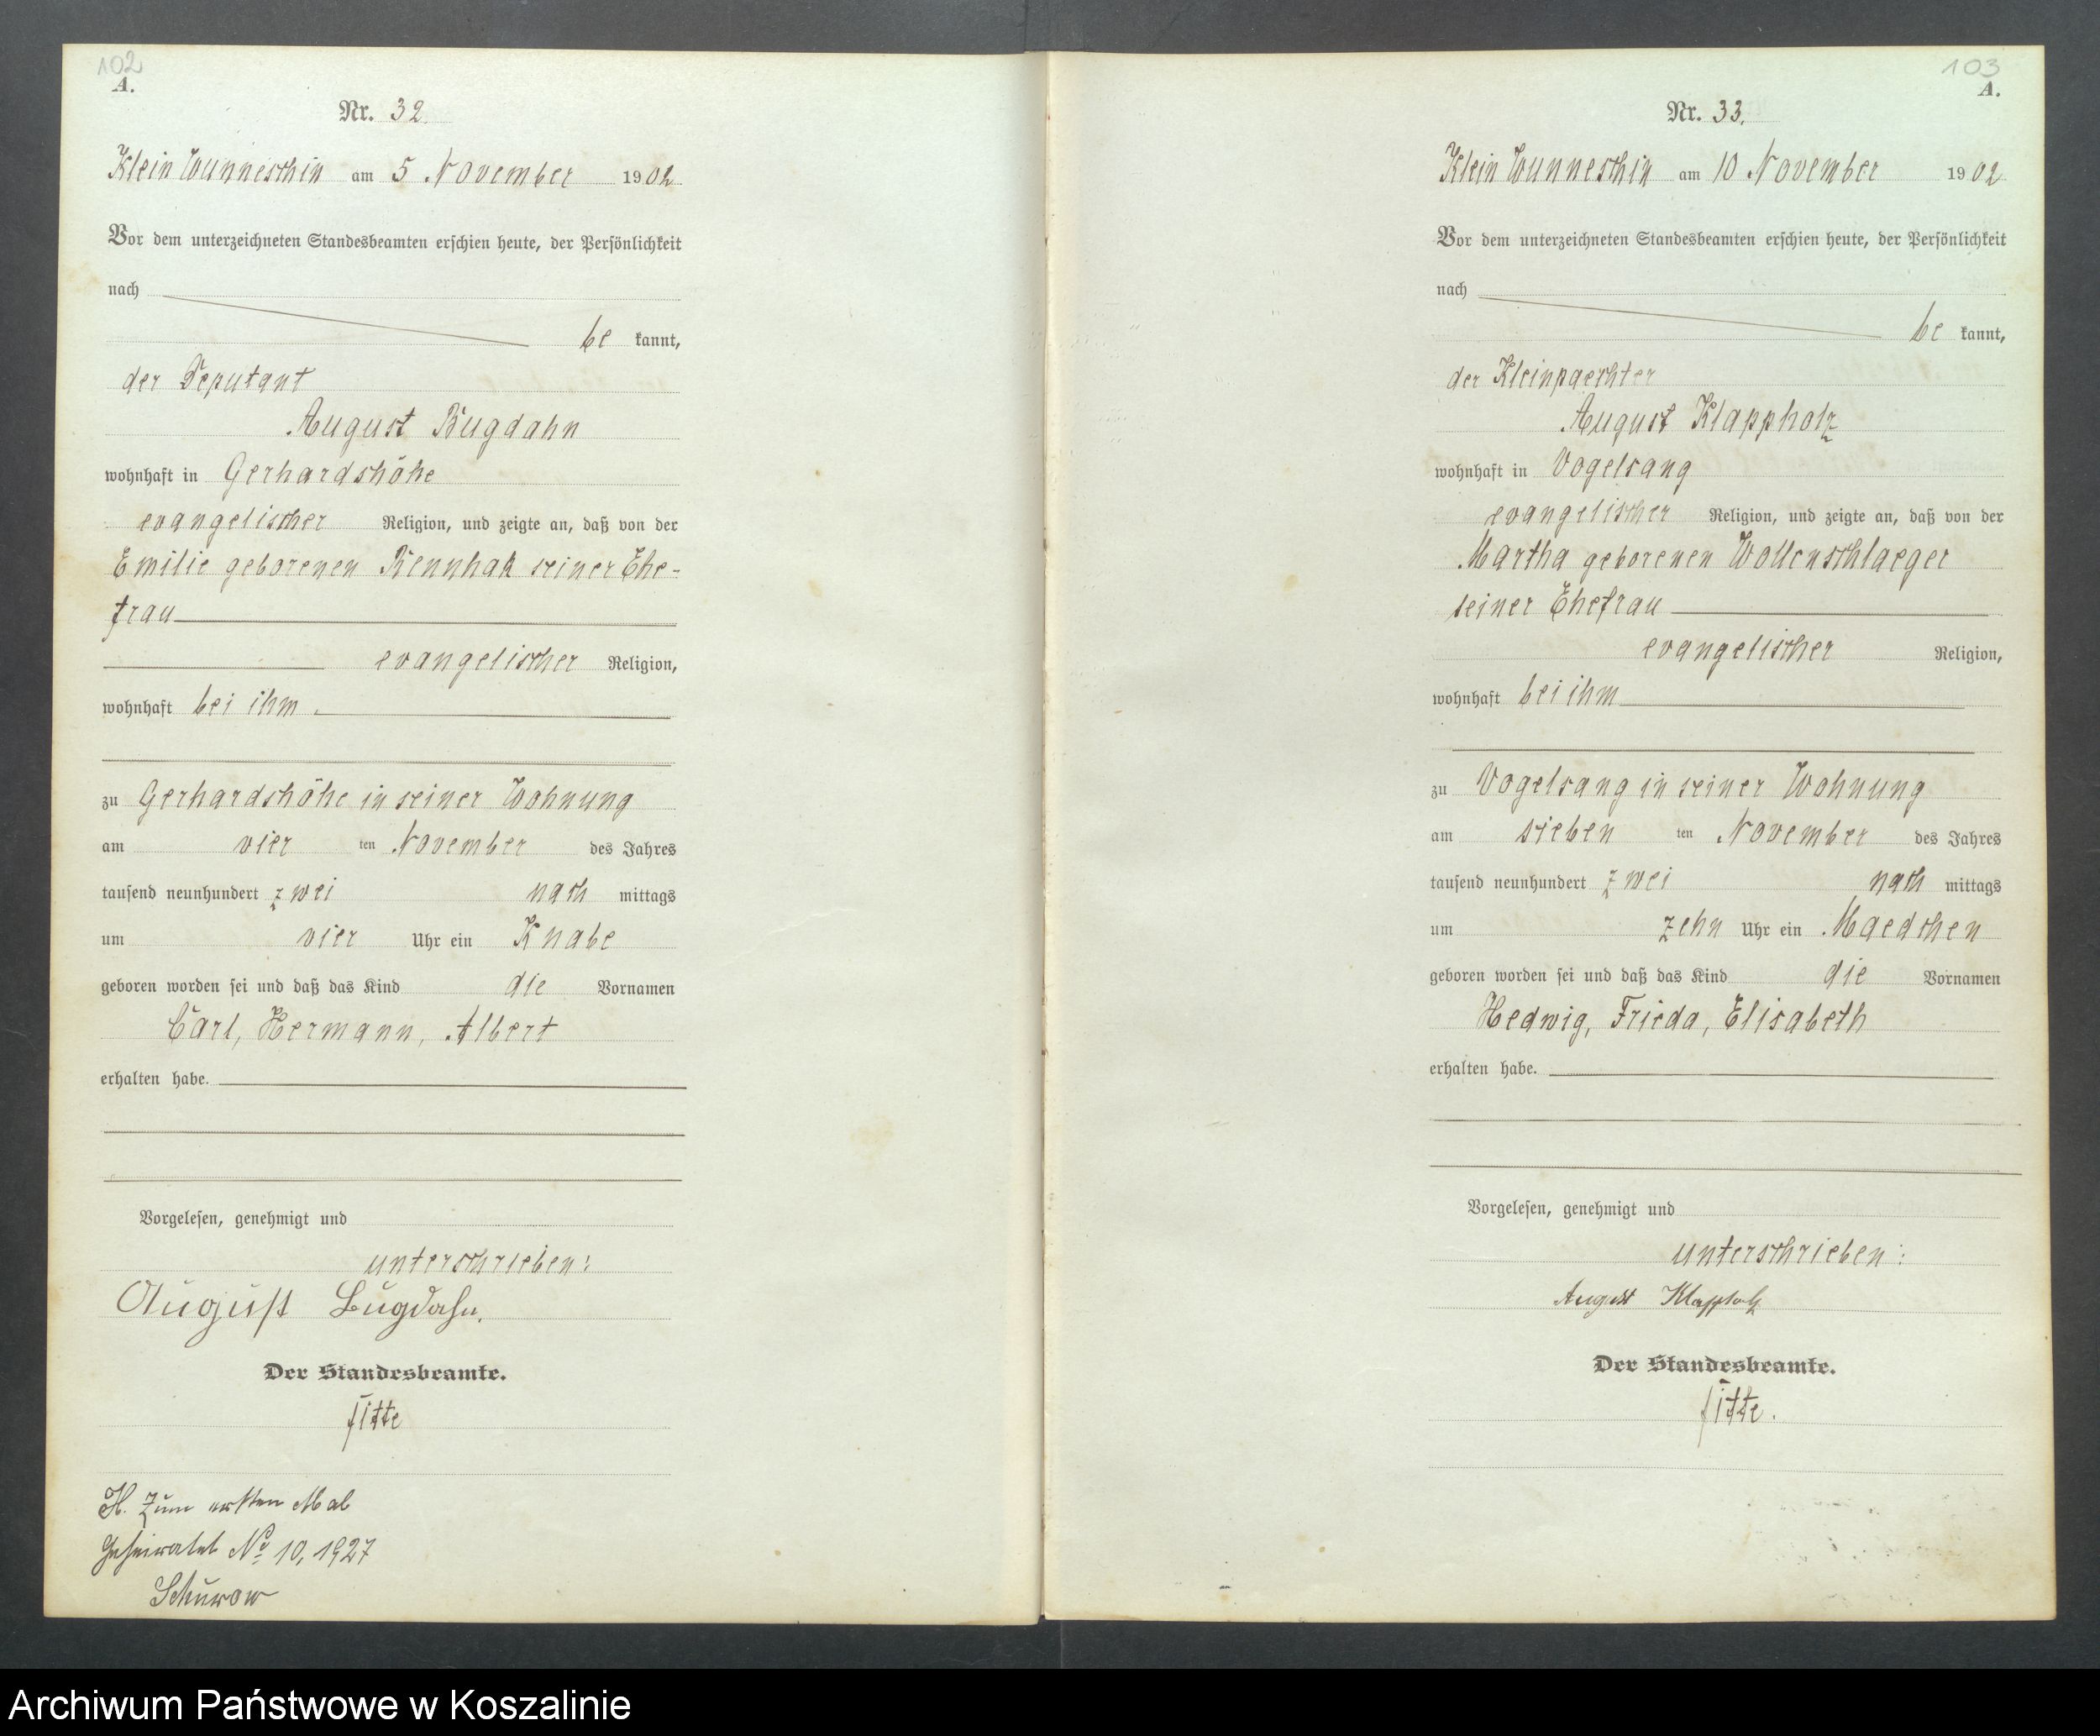 102
A.
Nr. 32.
Klein Wunneschin am 5 November 1902
Vor dem unterzeichneten Standesbeamten erschien heute, der Persönlichkeit
nach
be kannt,
der Deputant
August Bugdahn
wohnhaft in Gerhardshöhe
evangelischer Religion, und zeigte an, daß von der
Emilie geborenen Rennhak seiner Ehe-
frau
evangelischer Religion,
wohnhaft bei ihm
zu Gerhardshöhe in seiner Wohnung
am vier ten November des Jahres
tausend neunhundert zwei nach mittags
um vier Uhr ein Knabe
geboren worden sei und daß das Kind die Vornamen
Carl, Hermann, Albert
erhalten habe.
Vorgelesen, genehmigt und
unterschrieben:
August Bugdahn.
Der Standesbeamte.
Fitte
H. Zum ersten Mal
geheiratet No 10, 1927
Schurow
103
A.
Nr. 33.
Klein Wunneschin am 10 November 1902
Vor dem unterzeichneten Standesbeamten erschien heute, der Persönlichkeit
nach
be kannt,
der Kleinpaechter
August Klappholz
wohnhaft in Vogelsang
evangelischer Religion, und zeigte an, daß von der
Martha geborenen Wollenschlaeger
seiner Ehefrau
evangelischer Religion,
wohnhaft bei ihm
zu Vogelsang in seiner Wohnung
am sieben ten November des Jahres
tausend neunhundert zwei nach mittags
um zehn Uhr ein Maedchen
geboren worden sei und daß das Kind die Vornamen
Hedwig, Frieda, Elisabeth
erhalten habe.
Vorgelesen, genehmigt und
unterschrieben:
August Klappholz
Der Standesbeamte.
Fitte.
Archiwum Państwowe w Koszalinie